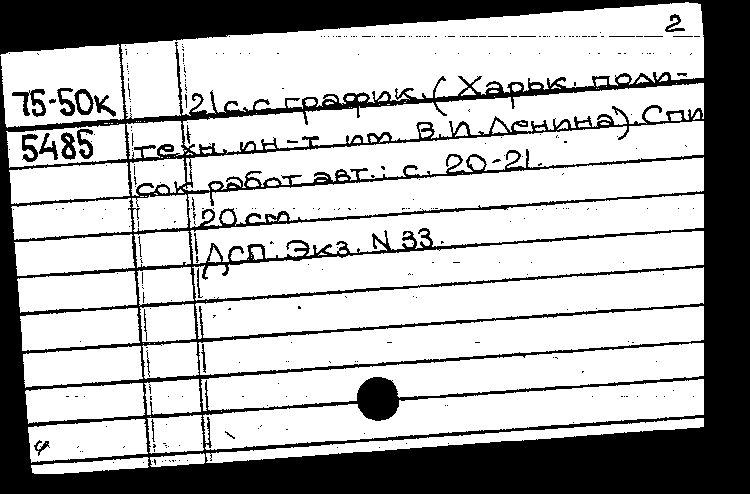 2
75-50к 21с.с график. (Харьк. поли-
5485 техн. ин-т им. В.И.Ленина). Спи
сок работ авт.: с. 20-21.
20 см.
ДСП. Экз. N 33.